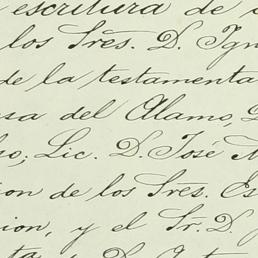 escritura de
los Sres. D. Ign
de la testamenta
sa del Alamo, D
so; Lic. D. José
ion de los Sres. Es
ion, y el Sr. D.